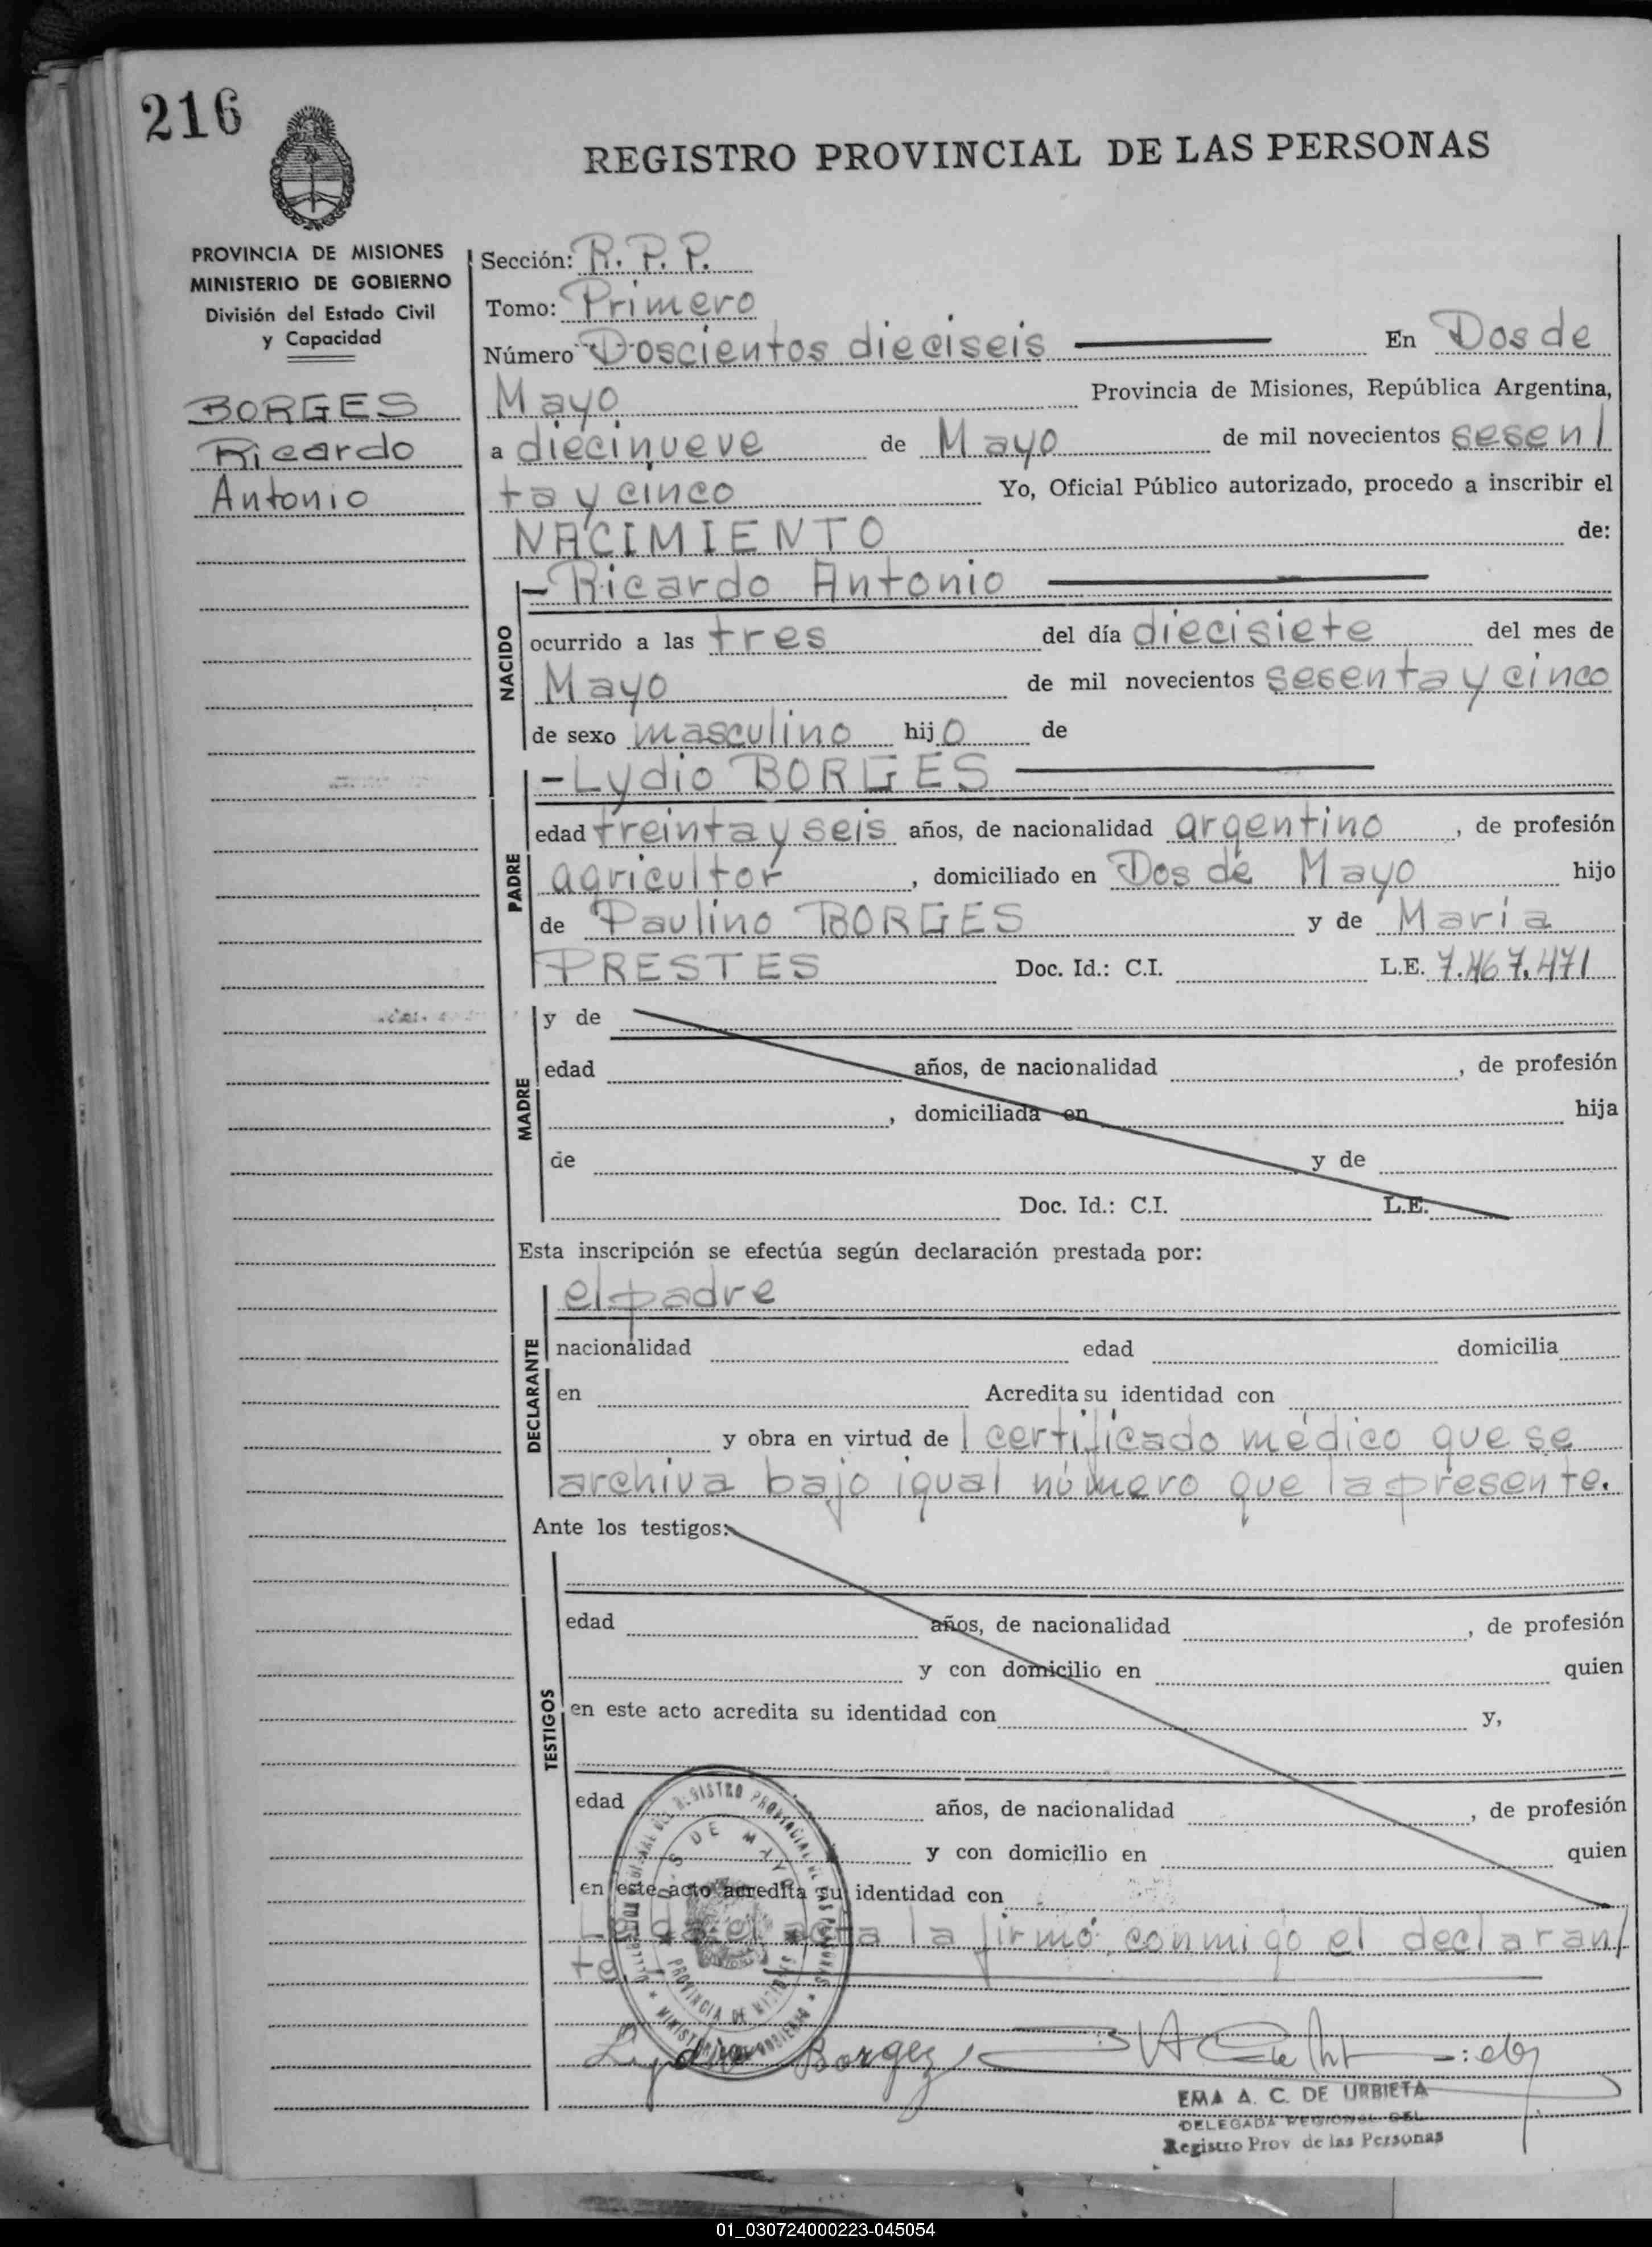 216
REGISTRO PROVINCIAL DE LAS PERSONAS
PROVINCIA DE MISIONES
MINISTERIO DE GOBIERNO
División del Estado Civil
y Capacidad
BORGES
Ricardo
Antonio
Sección: R. P. P.
Tomo: Primero
Número Doscientos dieciseis En Dos de
Mayo Provincia de Misiones, República Argentina,
a diecinueve de Mayo de mil novecientos sesen/
ta y cinco Yo, Oficial Público autorizado, procedo a inscribir el
NACIMIENTO de:
NACIDO
- Ricardo Antonio
ocurrido a las tres del día diecisiete del mes de
Mayo de mil novecientos sesenta y cinco
de sexo masculino hijo de
PADRE
- Lydio BORGES
edad treinta y seis años, de nacionalidad argentino, de profesión
agricultor, domiciliado en Dos de Mayo hijo
de Paulino BORGES y de María
PRESTES Doc. Id.: C.I. L.E. 7.467.471
MADRE
y de
edad años, de nacionalidad , de profesión
, domiciliada en hija
de y de
Doc. Id.: C.I. L.E.
Esta inscripción se efectúa según declaración prestada por:
DECLARANTE
el padre
nacionalidad edad domicilia
en Acredita su identidad con
y obra en virtud de / certificado médico que se
archiva bajo igual número que la presente.
Ante los testigos:
TESTIGOS
edad años, de nacionalidad , de profesión
y con domicilio en quien
en este acto acredita su identidad con y,
edad años, de nacionalidad , de profesión
y con domicilio en quien
en este acto acredita su identidad con
Leida el acta la firmó conmigo el declaran/
te.
DOS DE MAYO
PROVINCIA DE MISIONES
Lydio Borgez
EMA A. C. DE URBIETA
DELEGADA REGIONAL DEL
Registro Prov de las Personas
01_030724000223-045054